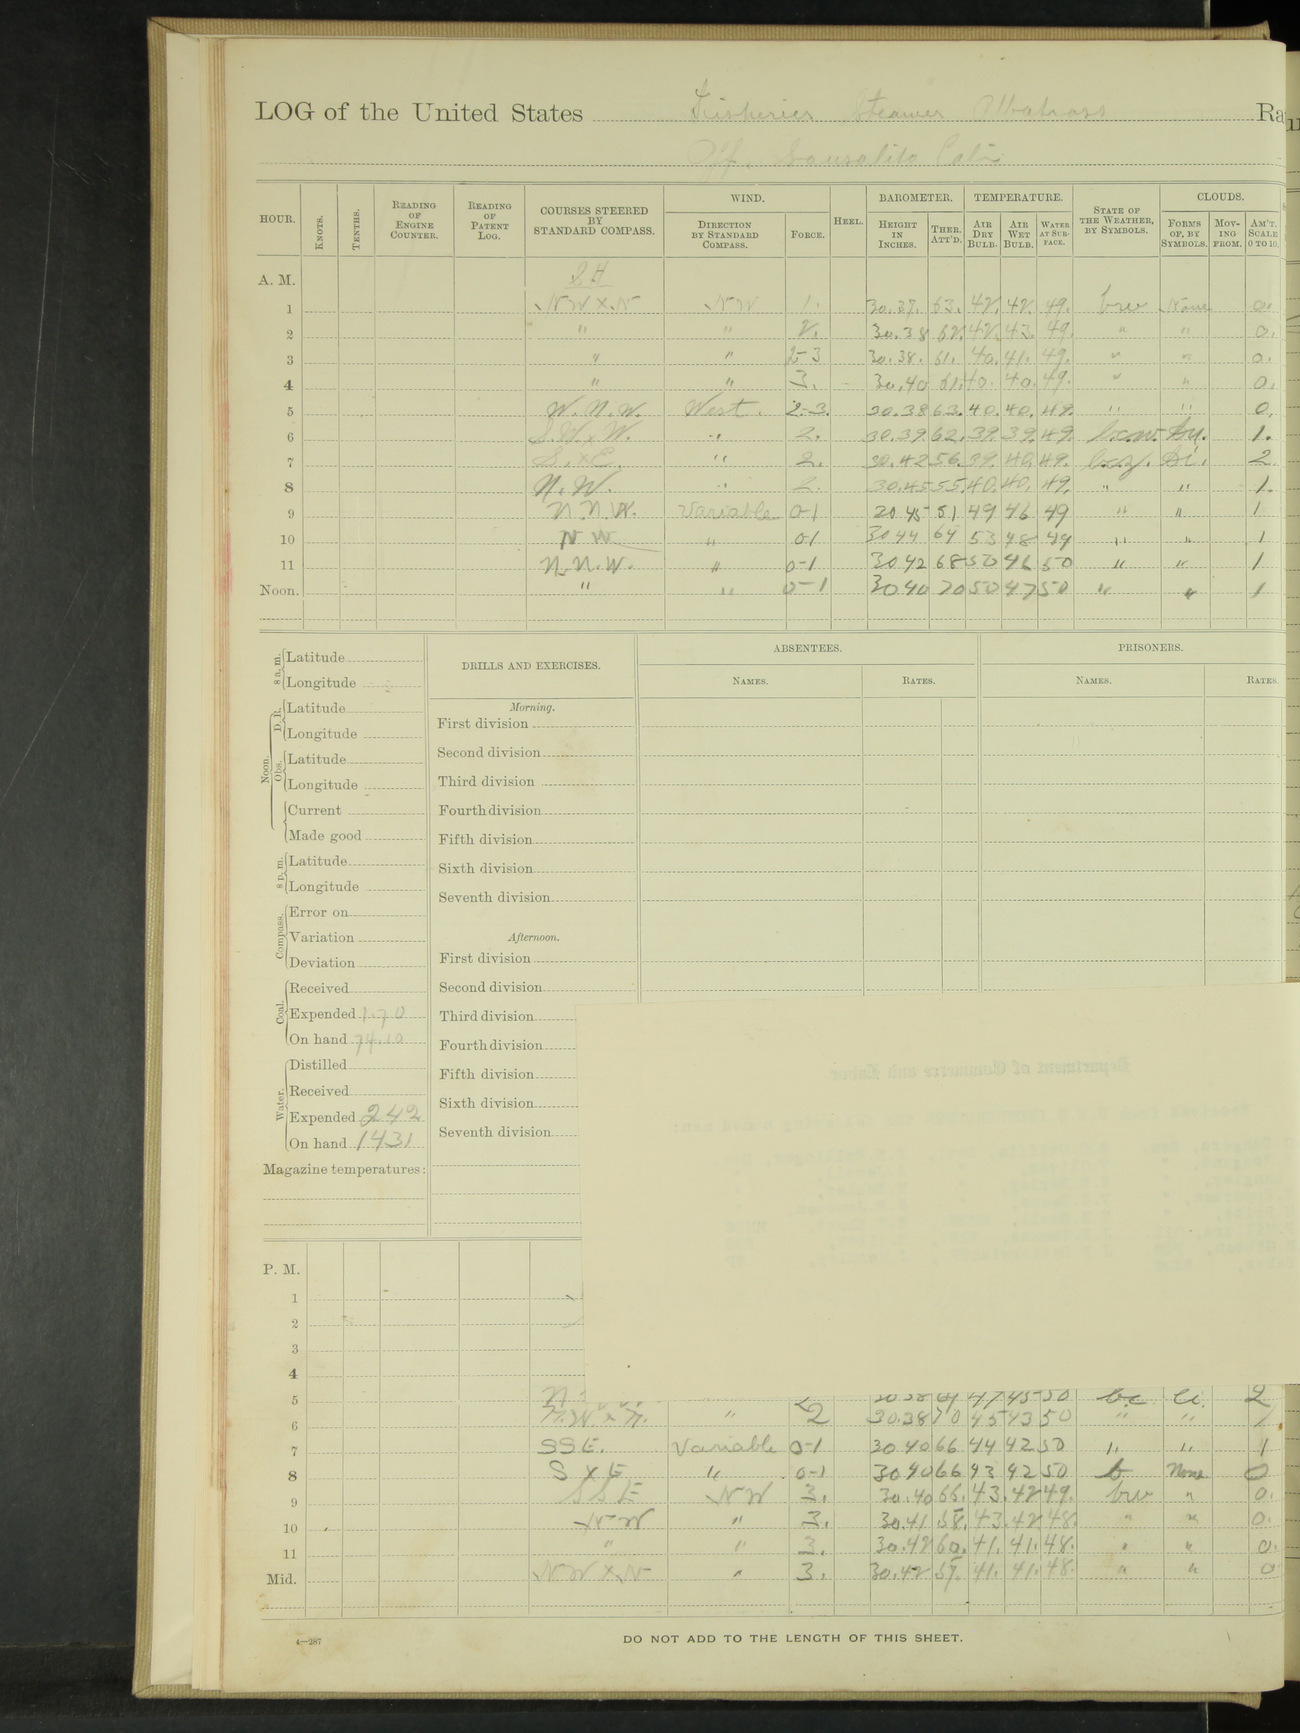 LOG of the United States Fisheries Steamer Albatross Ra
Off. Sausalito Cali
HOUR. KNOTS. TENTHS. READING OF ENGINE COUNTER. READING OF PATENT LOG. COURSES STEERED BY STANDARD COMPASS. WIND. DIRECTION BY STANDARD COMPASS. FORCE. HEEL. BAROMETER. HEIGHT IN INCHES. THER. ATT'D. TEMPERATURE. AIR DRY BULB. AIR WET BULB. WATER AT SURFACE. STATE OF THE WEATHER, BY SYMBOLS. CLOUDS. FORMS OF, BY SYMBOLS. MOVING FROM. AM'T. SCALE 0 TO 10.
A. M.
1 NW x N NW 1. 30.37. 63. 42. 42. 49. bcw None 0.
2 " " 2. 30.38 62. 42. 43. 49. " " 0.
3 " " 2-3 30.38. 61. 40. 41. 49. " " 0.
4 " " 3. 30.40 61. 40. 40. 49. " " 0.
5 W.N.W. West. 2-3. 30.38 63. 40. 40. 49. " " 0.
6 S.W. x W. " 2. 30.39. 62. 39. 39. 49. bcw. 1.
7 S. x E. " 2. 30.42 56. 39. 40. 49. Ci. 2.
8 N.W. " 2. 30.45 55. 40. 40. 49. " " 1.
9 N.N.W. Variable 0-1 30 45 51 49 46 49 " " 1
10 NW " 0-1 30 44 64 53 48 49 " " 1
11 N.N.W. " 0-1 30 42 68 50 46 50 " " 1
Noon. " " 0-1 30 40 70 50 47 50 " " 1
8 a. m. Latitude
Longitude
Noon. D. R. Latitude
Longitude
Obs. Latitude
Longitude
Current
Made good
8 p. m. Latitude
Longitude
Compass. Error on
Variation
Deviation
Coal. Received
Expended 1.70
On hand 74.10
Water. Distilled
Received
Expended 242
On hand 1431
Magazine temperatures:
DRILLS AND EXERCISES.
Morning.
First division
Second division
Third division
Fourth division
Fifth division
Sixth division
Seventh division
Afternoon.
First division
Second division
Third division
Fourth division
Fifth division
Sixth division
Seventh division
ABSENTEES. PRISONERS.
NAMES. RATES. NAMES. RATES.
P. M.
1
2
3
4
5 30 38 47 45 50 bc Ci. 2
6 N.W. x N. " 2 30.38 70 45 43 50 " " 1
7 SSE. Variable 0-1 30 40 66 44 42 50 " " 1
8 S x E " 0-1 30 40 66 43 42 50 b None 0
9 SSE NW 3. 30.40 66. 43. 42 49. bcw " 0.
10 NW " 3. 30.41 58. 43. 42 48. " " 0.
11 " " 3. 30.42 60. 41. 41. 48. " " 0.
Mid. NW x N " 3. 30.42 57. 41. 41. 48. " " 0
4—287
DO NOT ADD TO THE LENGTH OF THIS SHEET.